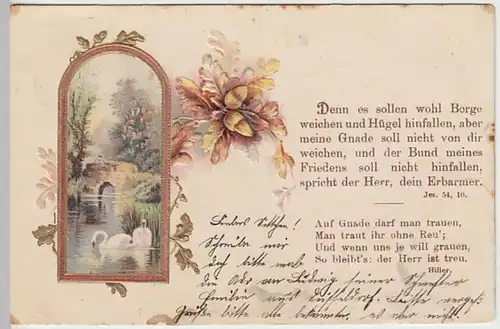 Denn es sollen wohl Berge
weichen und Hügel hinfallen, aber
meine Gnade soll nicht von dir
weichen, und der Bund meines
Friedens soll nicht hinfallen,
spricht der Herr, dein Erbarmer.
Jes. 54, 10.
Auf Gnade darf man trauen,
Man traut ihr ohne Reu';
Und wenn uns je will grauen,
So bleibt's: der Herr ist treu.
Hiller.
Liebes
Schreibe mir
doch bitte mal
die an Ludwig seiner Schwester
aus Düsseldorf.
Grüße bitte alle